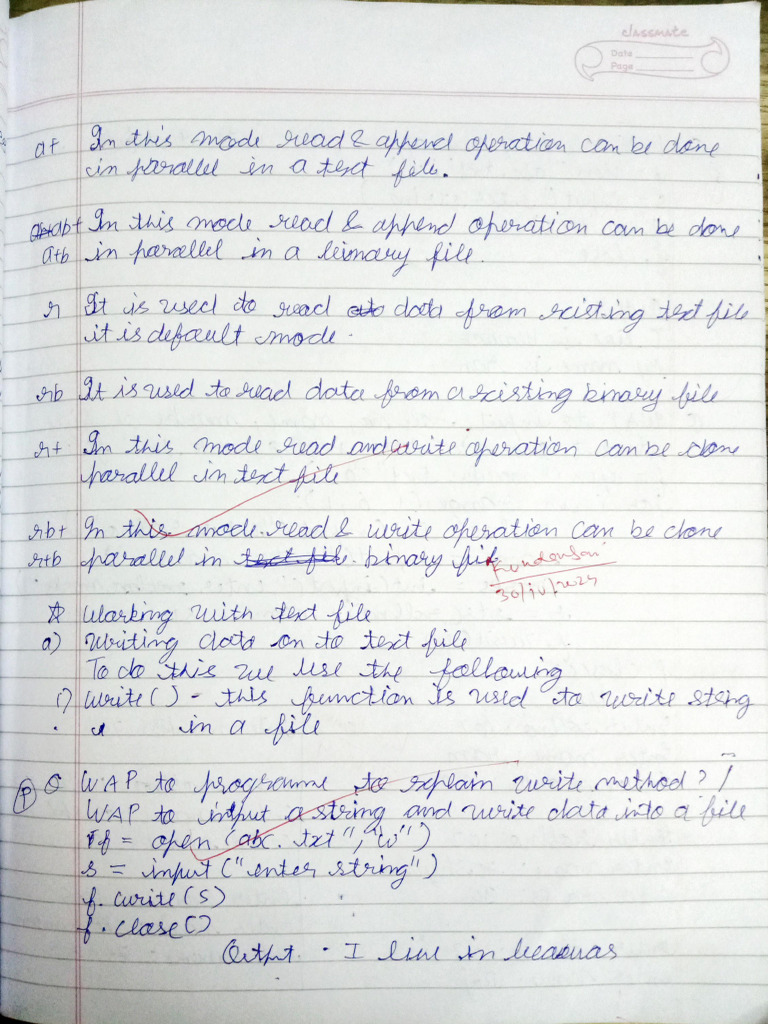 classmate
Date
Page
a+ In this mode read & append operation can be done
in parallel in a text file.
ab+ In this mode read & append operation can be done
a+b in parallel in a binary file.
r It is used to read data from existing text file
it is default mode.
rb It is used to read data from a existing binary file
r+ In this mode read and write operation can be done
parallel in text file
rb+ In this mode read & write operation can be done
r+b parallel in text file. binary file
30/10/2024
☆ Working with text file
a) Writing data on to text file
To do this we use the following
i) write() - this function is used to write string
in a file
(P) Q WAP to programme to explain write method? /
WAP to input a string and write data into a file
f = open (abc.txt", "w")
s = input ("enter string")
f. write (s)
f. close()
Output. I live in